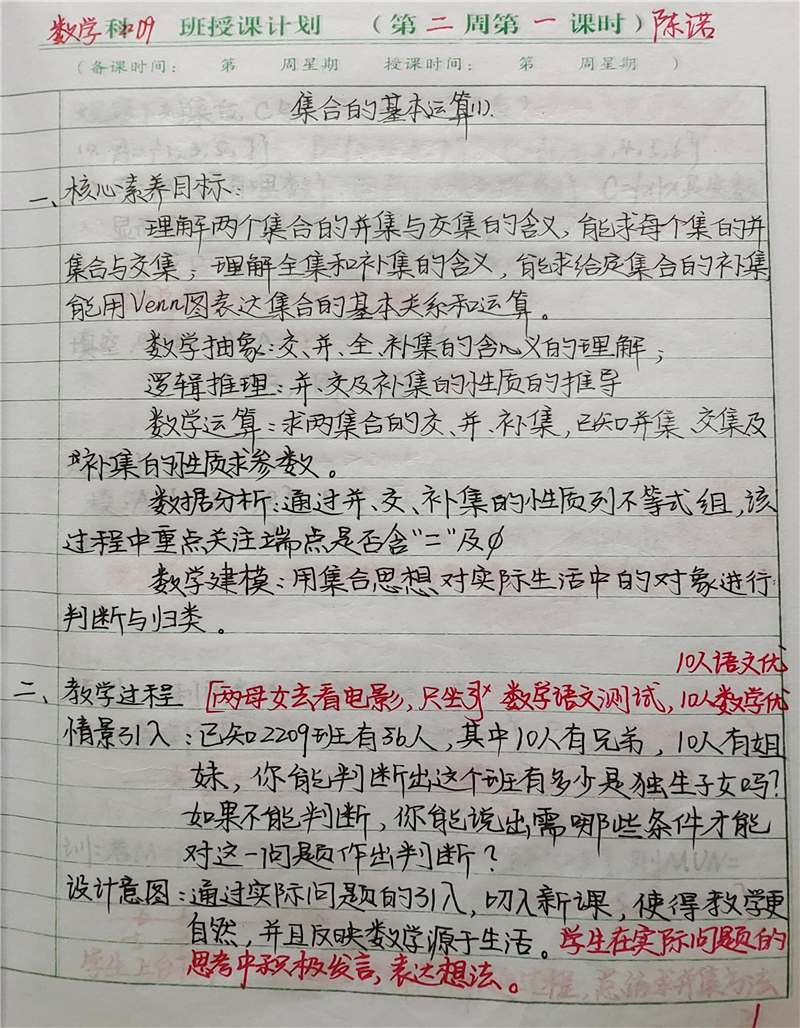 数学科 2209 班授课计划 （第二周第一课时）陈诺
（备课时间： 第 周星期 授课时间： 第 周星期 ）
集合的基本运算(1).
一、核心素养目标：
理解两个集合的并集与交集的含义，能求每个集的并
集合与交集；理解全集和补集的含义，能求给定集合的补集
能用Venn图表达集合的基本关系和运算。
数学抽象：交、并、全、补集的含义的理解；
逻辑推理：并、交及补集的性质的推导
数学运算：求两集合的交、并、补集，已知并集、交集及
补集的性质求参数。
数据分析：通过并、交、补集的性质列不等式组，该
过程中重点关注端点是否含“=”及∅
数学建模：用集合思想对实际生活中的对象进行
判断与归类。
10人语文优
二、教学过程 [两母女去看电影，只坐3张 数学语文测试，10人数学优
情景引入：已知2209班有36人，其中10人有兄弟，10人有姐
妹，你能判断出这个班有多少是独生子女吗？
如果不能判断，你能说出需哪些条件才能
对这一问题作出判断？
设计意图：通过实际问题的引入，切入新课，使得教学更
自然，并且反映数学源于生活。学生在实际问题的
思考中积极发言，表达想法。
1